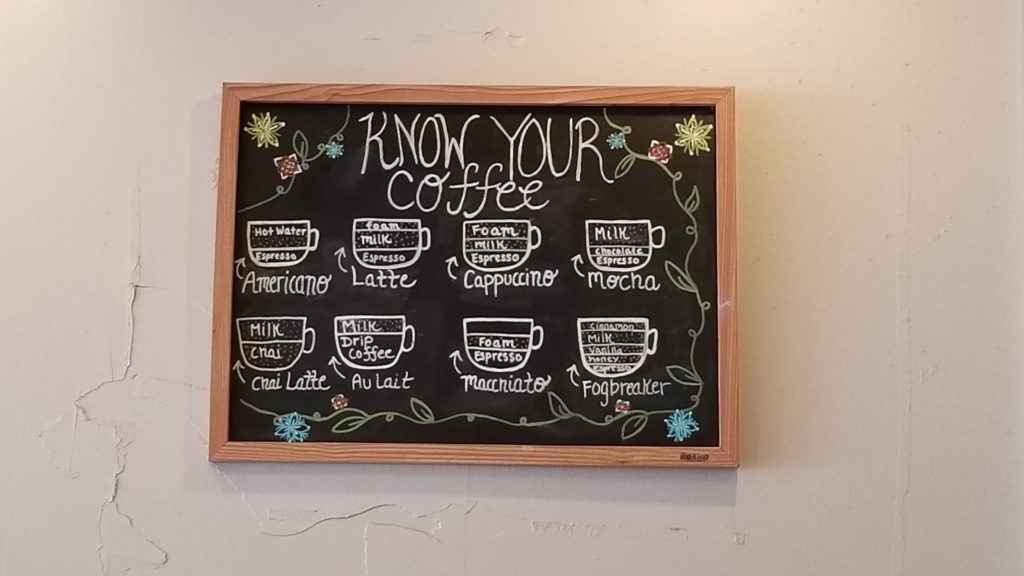 KNOW YOUR
coffee
Hot Water
Espresso
Americano
foam
milk
Espresso
Latte
Foam
milk
Espresso
Cappuccino
Milk
chocolate
Espresso
Mocha
Milk
chai
Chai Latte
Milk
Drip
Coffee
Au Lait
Foam
Espresso
macchiato
cinnamon
Milk
vanilla
honey
espresso
Fogbreaker